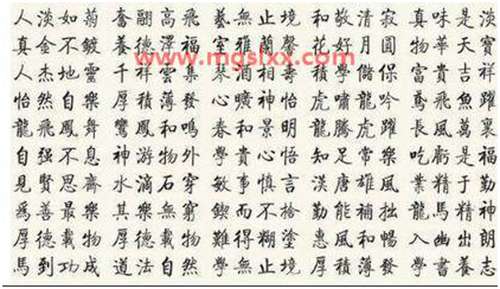 人淡如菊 奮翮高飛 藝無止境 和敬清寂 真味是淡
真金不鍍 養德澤福 室雅蘭馨 花好月圓 物華天寶
www.mgslxx.com
人杰地靈 千祥雲集 琴 酒相 積學儲 富貴吉祥
怡然自樂 厚積薄發 心曠神怡 虎嘯龍吟 鳶飛魚躍
龍飛鳳舞 鸞鳳和鳴 春和景明 龍騰虎躍 長風萬裏
自强不息 神游物外 和貴心悟 知足常樂 吃虧是福
見賢思齋 水滴石穿 敏事慎言 漢唐雄風 業精于勤
為善最樂 其樂無窮 鍥而不捨 勤能補拙 龍馬精神
厚德載物 厚德載物 難得糊塗 惠風和暢 入幽出朗
馬到功成 道法自然 學無止境 厚積薄發 學書養志